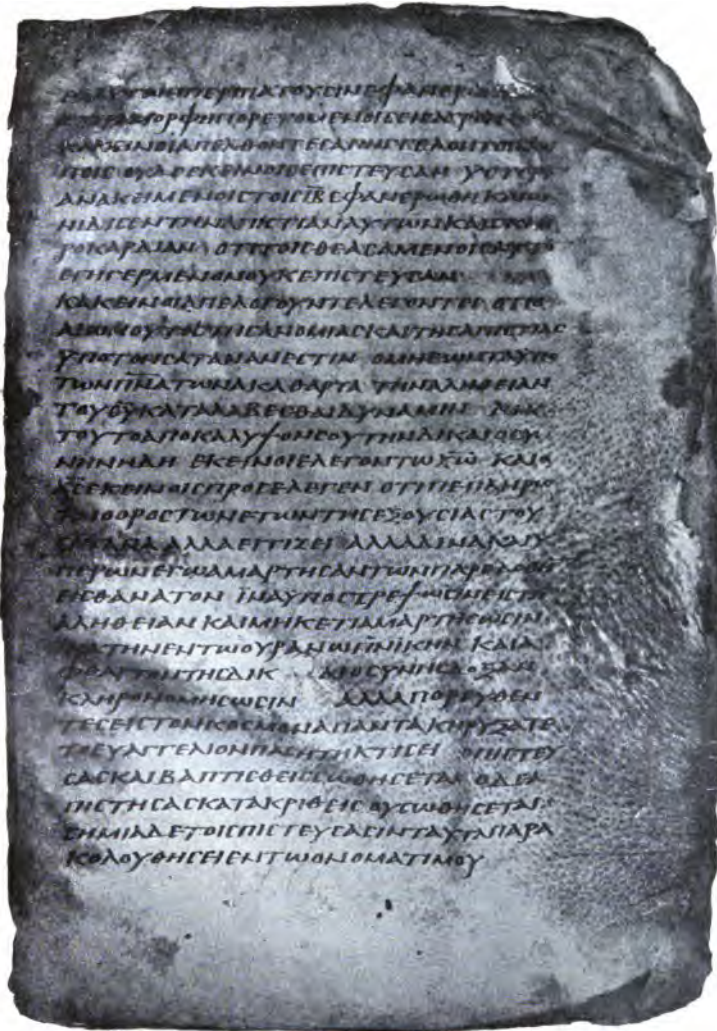 ΕΞΑΥΤΩΝΠΕΡΙΠΑΤΟΥϹΙΝΕΦΑΝΕΡΩ
ΕΤΕΡΑΜΟΡΦΗΠΟΡΕΥΟΜΕΝΟΙϹΕΙϹΑΓΡΟΝ
ΚΑΚΕΙΝΟΙΑΠΕΛΘΟΝΤΕϹΑΠΗΓΓΕΛΟΝΤΟΙϹΛΟΙ
ΠΟΙϹ ΟΥΔΕΕΚΕΙΝΟΙϹΕΠΙϹΤΕΥϹΑΝ ΥϹΤΕΡΟ
ΑΝΑΚΕΙΜΕΝΟΙϹΤΟΙϹΙ̅Α̅ΕΦΑΝΕΡΩΘΗΚΑΙΩ
ΝΙΔΙϹΕΝΤΗΝΑΠΙϹΤΙΑΝΑΥΤΩΝΚΑΙϹΚΛΗ
ΡΟΚΑΡΔΙΑΝ ΟΤΙΤΟΙϹΘΕΑϹΑΜΕΝΟΙϹΑΥΤΟ
ΕΓΗΓΕΡΜΕΝΟΝΟΥΚΕΠΙϹΤΕΥϹΑΝ
ΚΑΚΕΙΝΟΙΑΠΕΛΟΓΟΥΝΤΕΛΕΓΟΝΤΕϹ ΟΤΙΟ
ΑΙΩΝΟΥΤΟϹΤΗϹΑΝΟΜΙΑϹΚΑΙΤΗϹΑΠΙϹΤΙΑϹ
ΥΠΟΤΟΝϹΑΤΑΝΑΝΕϹΤΙΝ ΟΜΗΕΩΝΤΑΥΠΟ
ΤΩΝΠ̅Ν̅Α̅ΤΩΝΑΚΑΘΑΡΤΑ ΤΗΝΑΛΗΘΕΙΑΝ
ΤΟΥΘ̅Υ̅ΚΑΤΑΛΑΒΕϹΘΑΙΔΥΝΑΜΙΝ ΔΙΑ
ΤΟΥΤΟΑΠΟΚΑΛΥΨΟΝϹΟΥΤΗΝΔΙΚΑΙΟϹΥ
ΝΗΝΗΔΗ ΕΚΕΙΝΟΙΕΛΕΓΟΝΤΩΧ̅Ω̅ ΚΑΙΟ
Χ̅Ϲ̅ΕΚΕΙΝΟΙϹΠΡΟϹΕΛΕΓΕΝ ΟΤΙΠΕΠΛΗΡΩ
ΤΑΙΟΟΡΟϹΤΩΝΕΤΩΝΤΗϹΕΞΟΥϹΙΑϹΤΟΥ
ϹΑΤΑΝΑ ΑΛΛΑΕΓΓΙΖΕΙ ΑΛΛΑΔΙΝΑΚΑΙΥ
ΠΕΡΩΝΕΓΩΑΜΑΡΤΗϹΑΝΤΩΝΠΑΡΕΔΟΘΗ
ΕΙϹΘΑΝΑΤΟΝ ΪΝΑΫΠΟϹΤΡΕΨΩϹΙΝΕΙϹΤΗ
ΑΛΗΘΕΙΑΝ ΚΑΙΜΗΚΕΤΙΑΜΑΡΤΗϹΩϹΙΝ
ΪΝΑΤΗΝΕΝΤΩΟΥΡΑΝΩΠ̅Ν̅ΙΚΗΝ ΚΑΙΑ
ΦΘΑΡΤΟΝΤΗϹΔΙΚΑΙΟϹΥΝΗϹΔΟΞΑΝ
ΚΛΗΡΟΝΟΜΗϹΩϹΙΝ ΑΛΛΑΠΟΡΕΥΘΕΝ
ΤΕϹΕΙϹΤΟΝΚΟϹΜΟΝΑΠΑΝΤΑΚΗΡΥΞΑΤΕ
ΤΟΕΥΑΓΓΕΛΙΟΝΠΑϹΗΤΗΚΤΙϹΕΙ ΟΠΙϹΤΕΥ
ϹΑϹΚΑΙΒΑΠΤΙϹΘΕΙϹϹΩΘΗϹΕΤΑΙ ΟΔΕΑ
ΠΙϹΤΗϹΑϹΚΑΤΑΚΡΙΘΕΙϹ ΟΥϹΩΘΗϹΕΤΑΙ
ϹΗΜΙΑΔΕΤΟΙϹΠΙϹΤΕΥϹΑϹΙΝΤΑΥΤΑΠΑΡΑ
ΚΟΛΟΥΘΗϹΕΙΕΝΤΩΟΝΟΜΑΤΙΜΟΥ